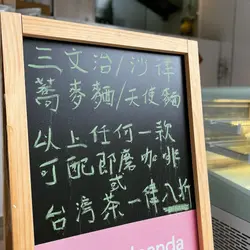 三文治/沙律
蕎麥麵/天使麵
以上任何一款
可配即磨咖啡
或
台湾茶一律八折